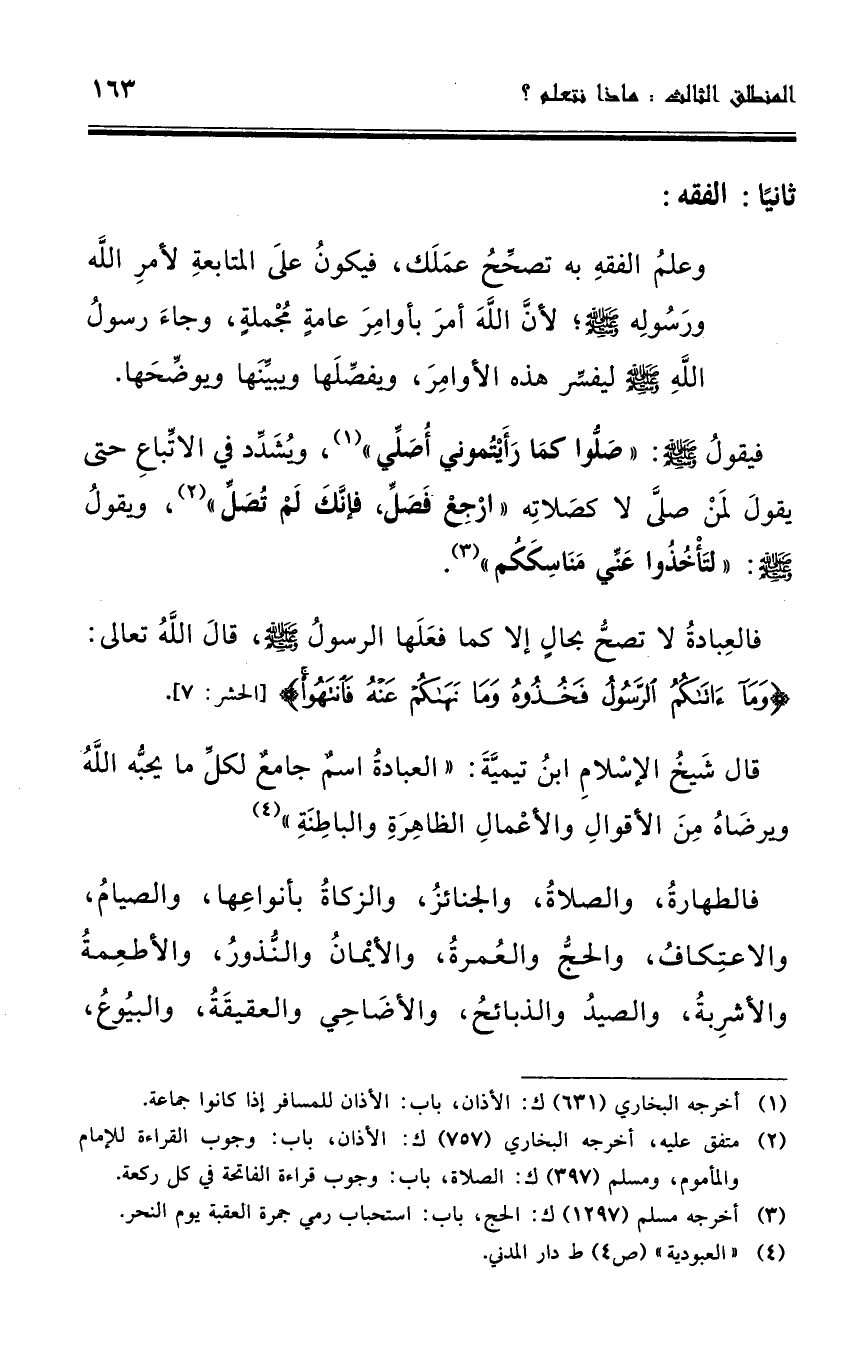 المنطلق الثالث : ماذا نتعلم ؟ ١٦٣
ثانيًا : الفقه :
وعلمُ الفقهِ به تصحِّحُ عمَلَك، فيكونُ علىَ المتابعةِ لأمرِ اللَّه
ورَسُولِه ﷺ؛ لأنَّ اللَّهَ أمرَ بأوامِرَ عامةٍ مُجْملةٍ، وجاءَ رسولُ
اللَّهِ ﷺ ليفسِّر هذه الأوامِرَ، ويفصِّلَها ويبيِّنَها ويوضِّحَها.
فيقولُ ﷺ: « صَلُّوا كمَا رَأَيْتُموني أُصَلِّي »(١)، ويُشَدِّد في الاتِّباعِ حتى
يقولَ لمَنْ صلىَّ لا كصَلاتِه « ارْجِعْ فَصَلِّ، فإنَّكَ لَمْ تُصَلِّ »(٢)، ويقولُ
ﷺ: « لتَأْخُذُوا عَنِّي مَنَاسِكَكُم »(٣).
فالعِبادةُ لا تصحُّ بحالٍ إلا كما فعَلَها الرسولُ ﷺ، قالَ اللَّهُ تعالى:
﴿وَمَآ ءَاتَىٰكُمُ ٱلرَّسُولُ فَخُذُوهُ وَمَا نَهَىٰكُمْ عَنْهُ فَٱنتَهُوا۟ۚ﴾ [الحشر: ٧].
قال شَيخُ الإسْلامِ ابنُ تيميَّةَ: « العبادةُ اسمٌ جامعٌ لكلِّ ما يحبُّه اللَّهُ
ويرضَاهُ مِنَ الأقوالِ والأعْمالِ الظاهِرَةِ والباطِنَةِ »(٤)
فالطهارةُ، والصلاةُ، والجنائزُ، والزكاةُ بأنواعِها، والصيامُ،
والاعتِكافُ، والحجُّ والعُمرةُ، والأيْمانُ والنُّذورُ، والأطعِمةُ
والأشرِبةُ، والصيدُ والذبائحُ، والأضَاحِي والعقيقَةُ، والبيُوعُ،
(١) أخرجه البخاري (٦٣١) ك: الأذان، باب: الأذان للمسافر إذا كانوا جماعة.
(٢) متفق عليه، أخرجه البخاري (٧٥٧) ك: الأذان، باب: وجوب القراءة للإمام
والمأموم، ومسلم (٣٩٧) ك: الصلاة، باب: وجوب قراءة الفاتحة في كل ركعة.
(٣) أخرجه مسلم (١٢٩٧) ك: الحج، باب: استحباب رمي جمرة العقبة يوم النحر.
(٤) « العبودية » (ص٤) ط دار المدني.